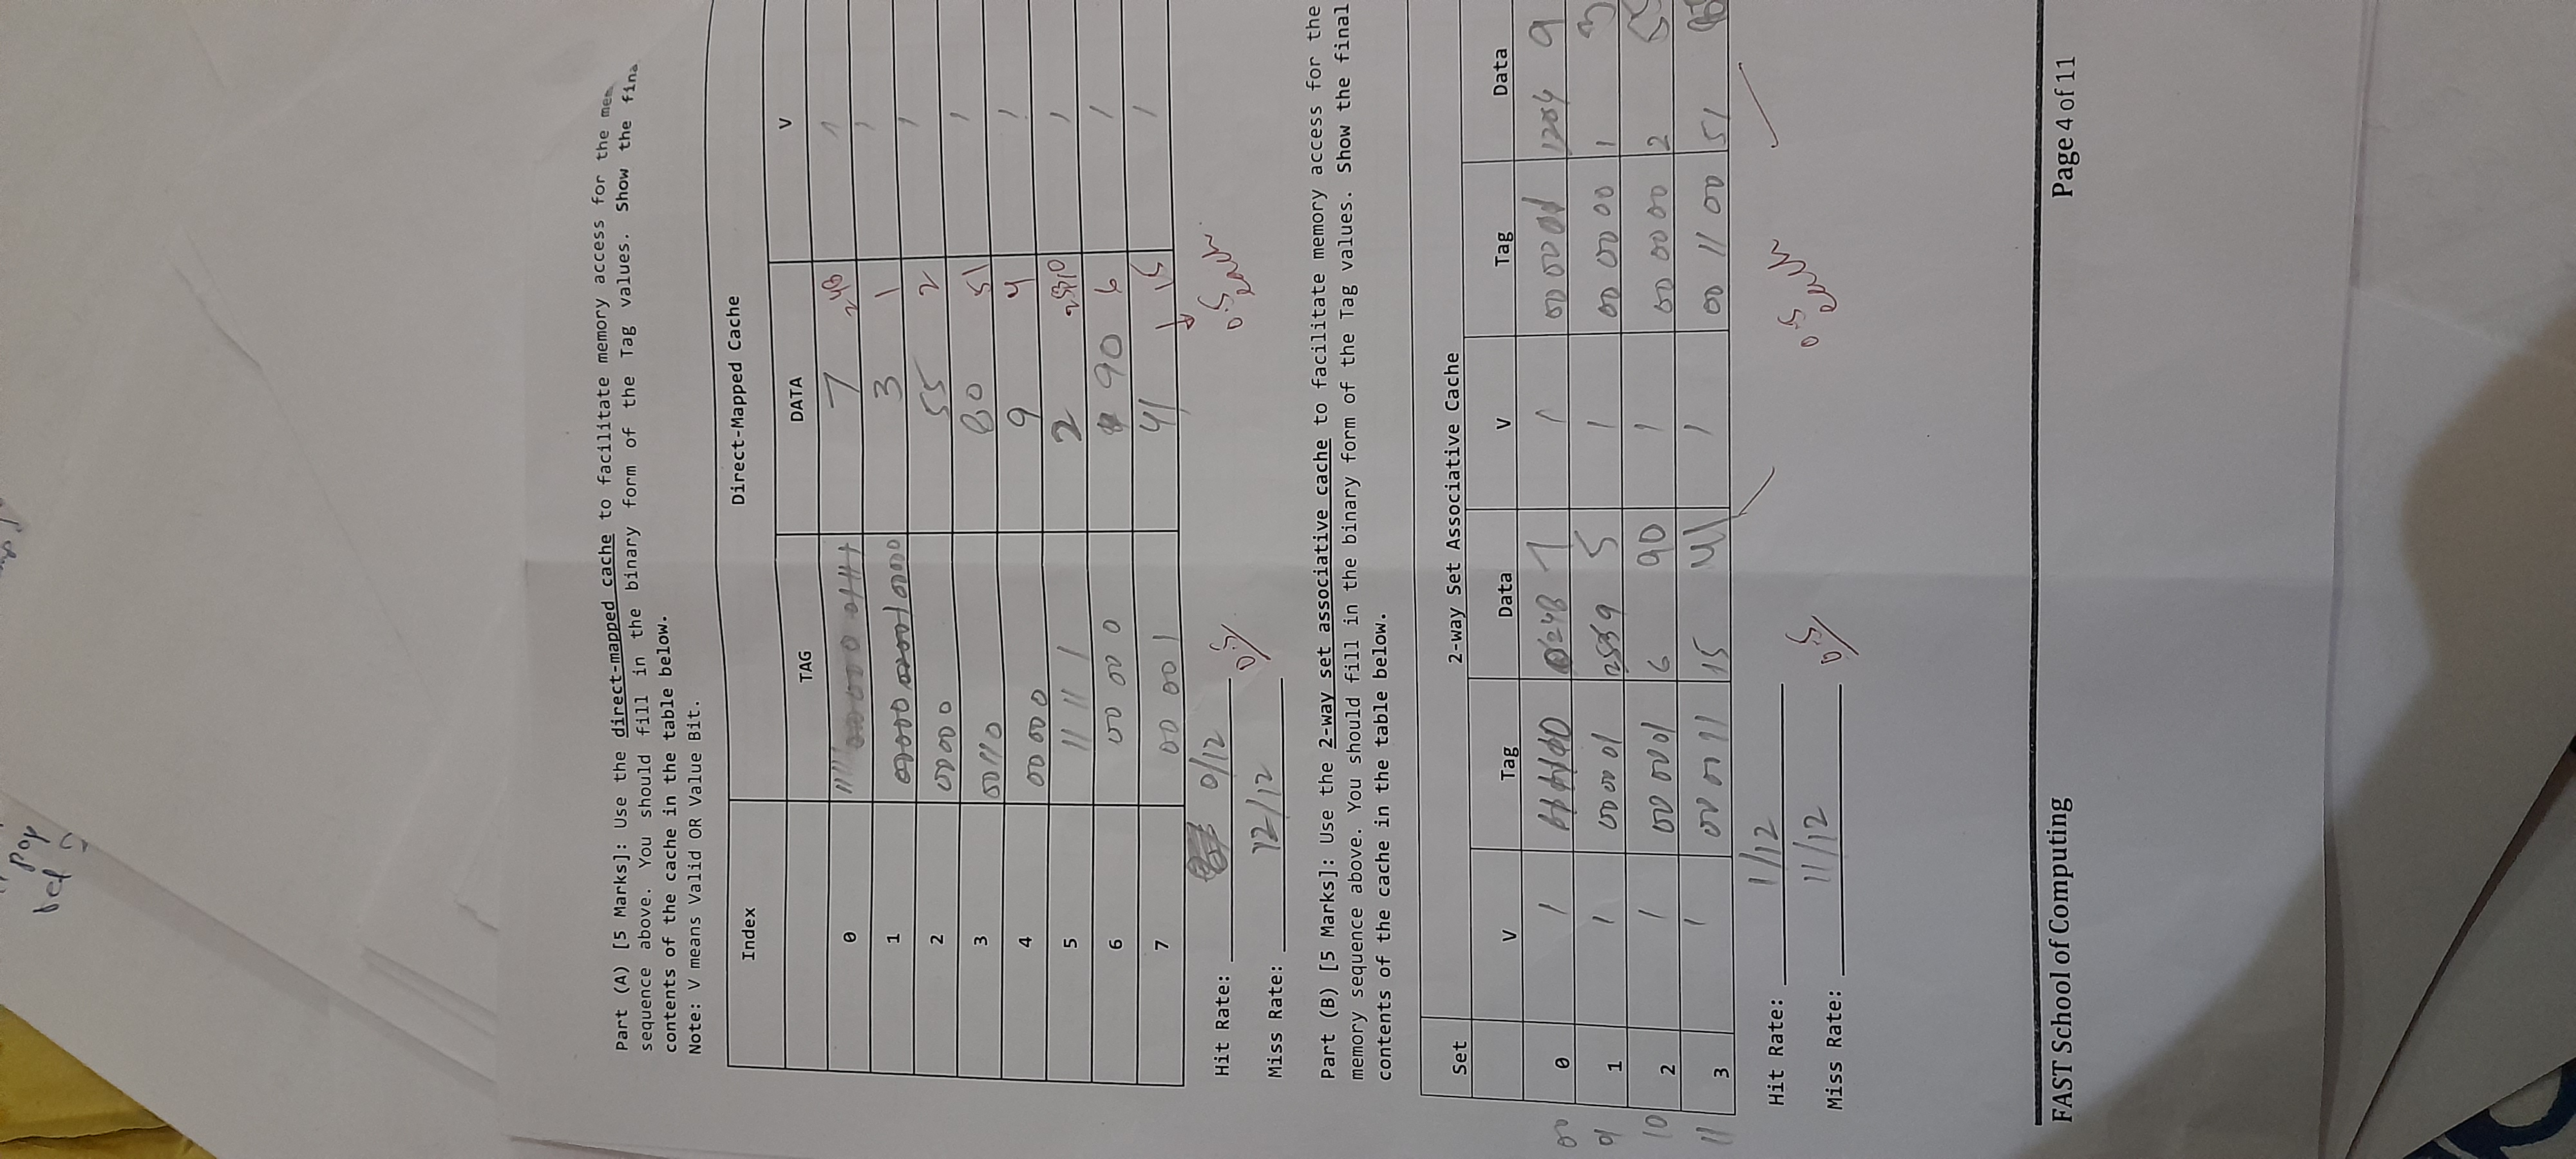 pop
Part (A) [5 Marks]: Use the direct-mapped cache to facilitate memory access for the mem
sequence above. You should fill in the binary form of the Tag values. Show the fina
contents of the cache in the table below.
Note: V means Valid OR Value Bit.
Index Direct-Mapped Cache
TAG DATA V
0 11111 7 248 1
1 00000 3 1 1
2 00000 55 2 1
3 00110 80 51 1
4 00000 9 4 1
5 11111 2 1
6 00000 90 6 1
7 00001 41 15 1
Hit Rate: 0/12
Miss Rate: 12/12 0.5
0.5 each
Part (B) [5 Marks]: Use the 2-way set associative cache to facilitate memory access for the
memory sequence above. You should fill in the binary form of the Tag values. Show the final
contents of the cache in the table below.
Set 2-way Set Associative Cache
V Tag Data V Tag Data
00 0 1 248 7 1 9
01 1 1 000001 5 1 000000 1 3
10 2 1 000001 6 90 1 000000 2
11 3 1 000011 15 41 1 001100 51
Hit Rate: 1/12
Miss Rate: 11/12 0.5
0.5 each
FAST School of Computing Page 4 of 11